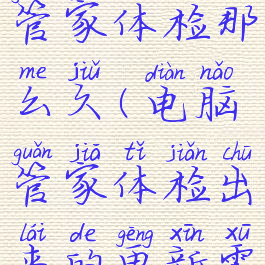 管家体检那
me jiǔ diàn nǎo
么久(电脑
guǎn jiā tǐ jiǎn chū
管家体检出
lái de gēng xīn xū
来的更新需